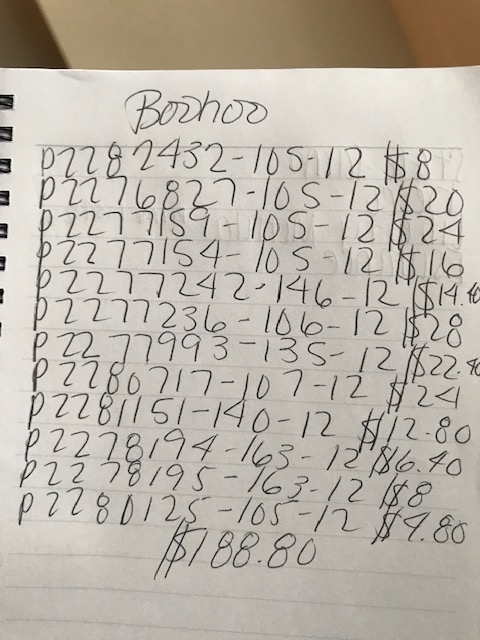 Boohoo
P2282432-105-12 $8
P2276827-105-12 $20
P2277159-105-12 $24
P2277154-105-12 $16
P2277242-146-12 $14.40
P2277236-106-12 $28
P2277993-135-12 $22.40
P2280717-107-12 $24
P2281151-140-12 $12.80
P2278194-163-12 $6.40
P2278195-163-12 $8
P2280125-105-12 $4.80
$188.80